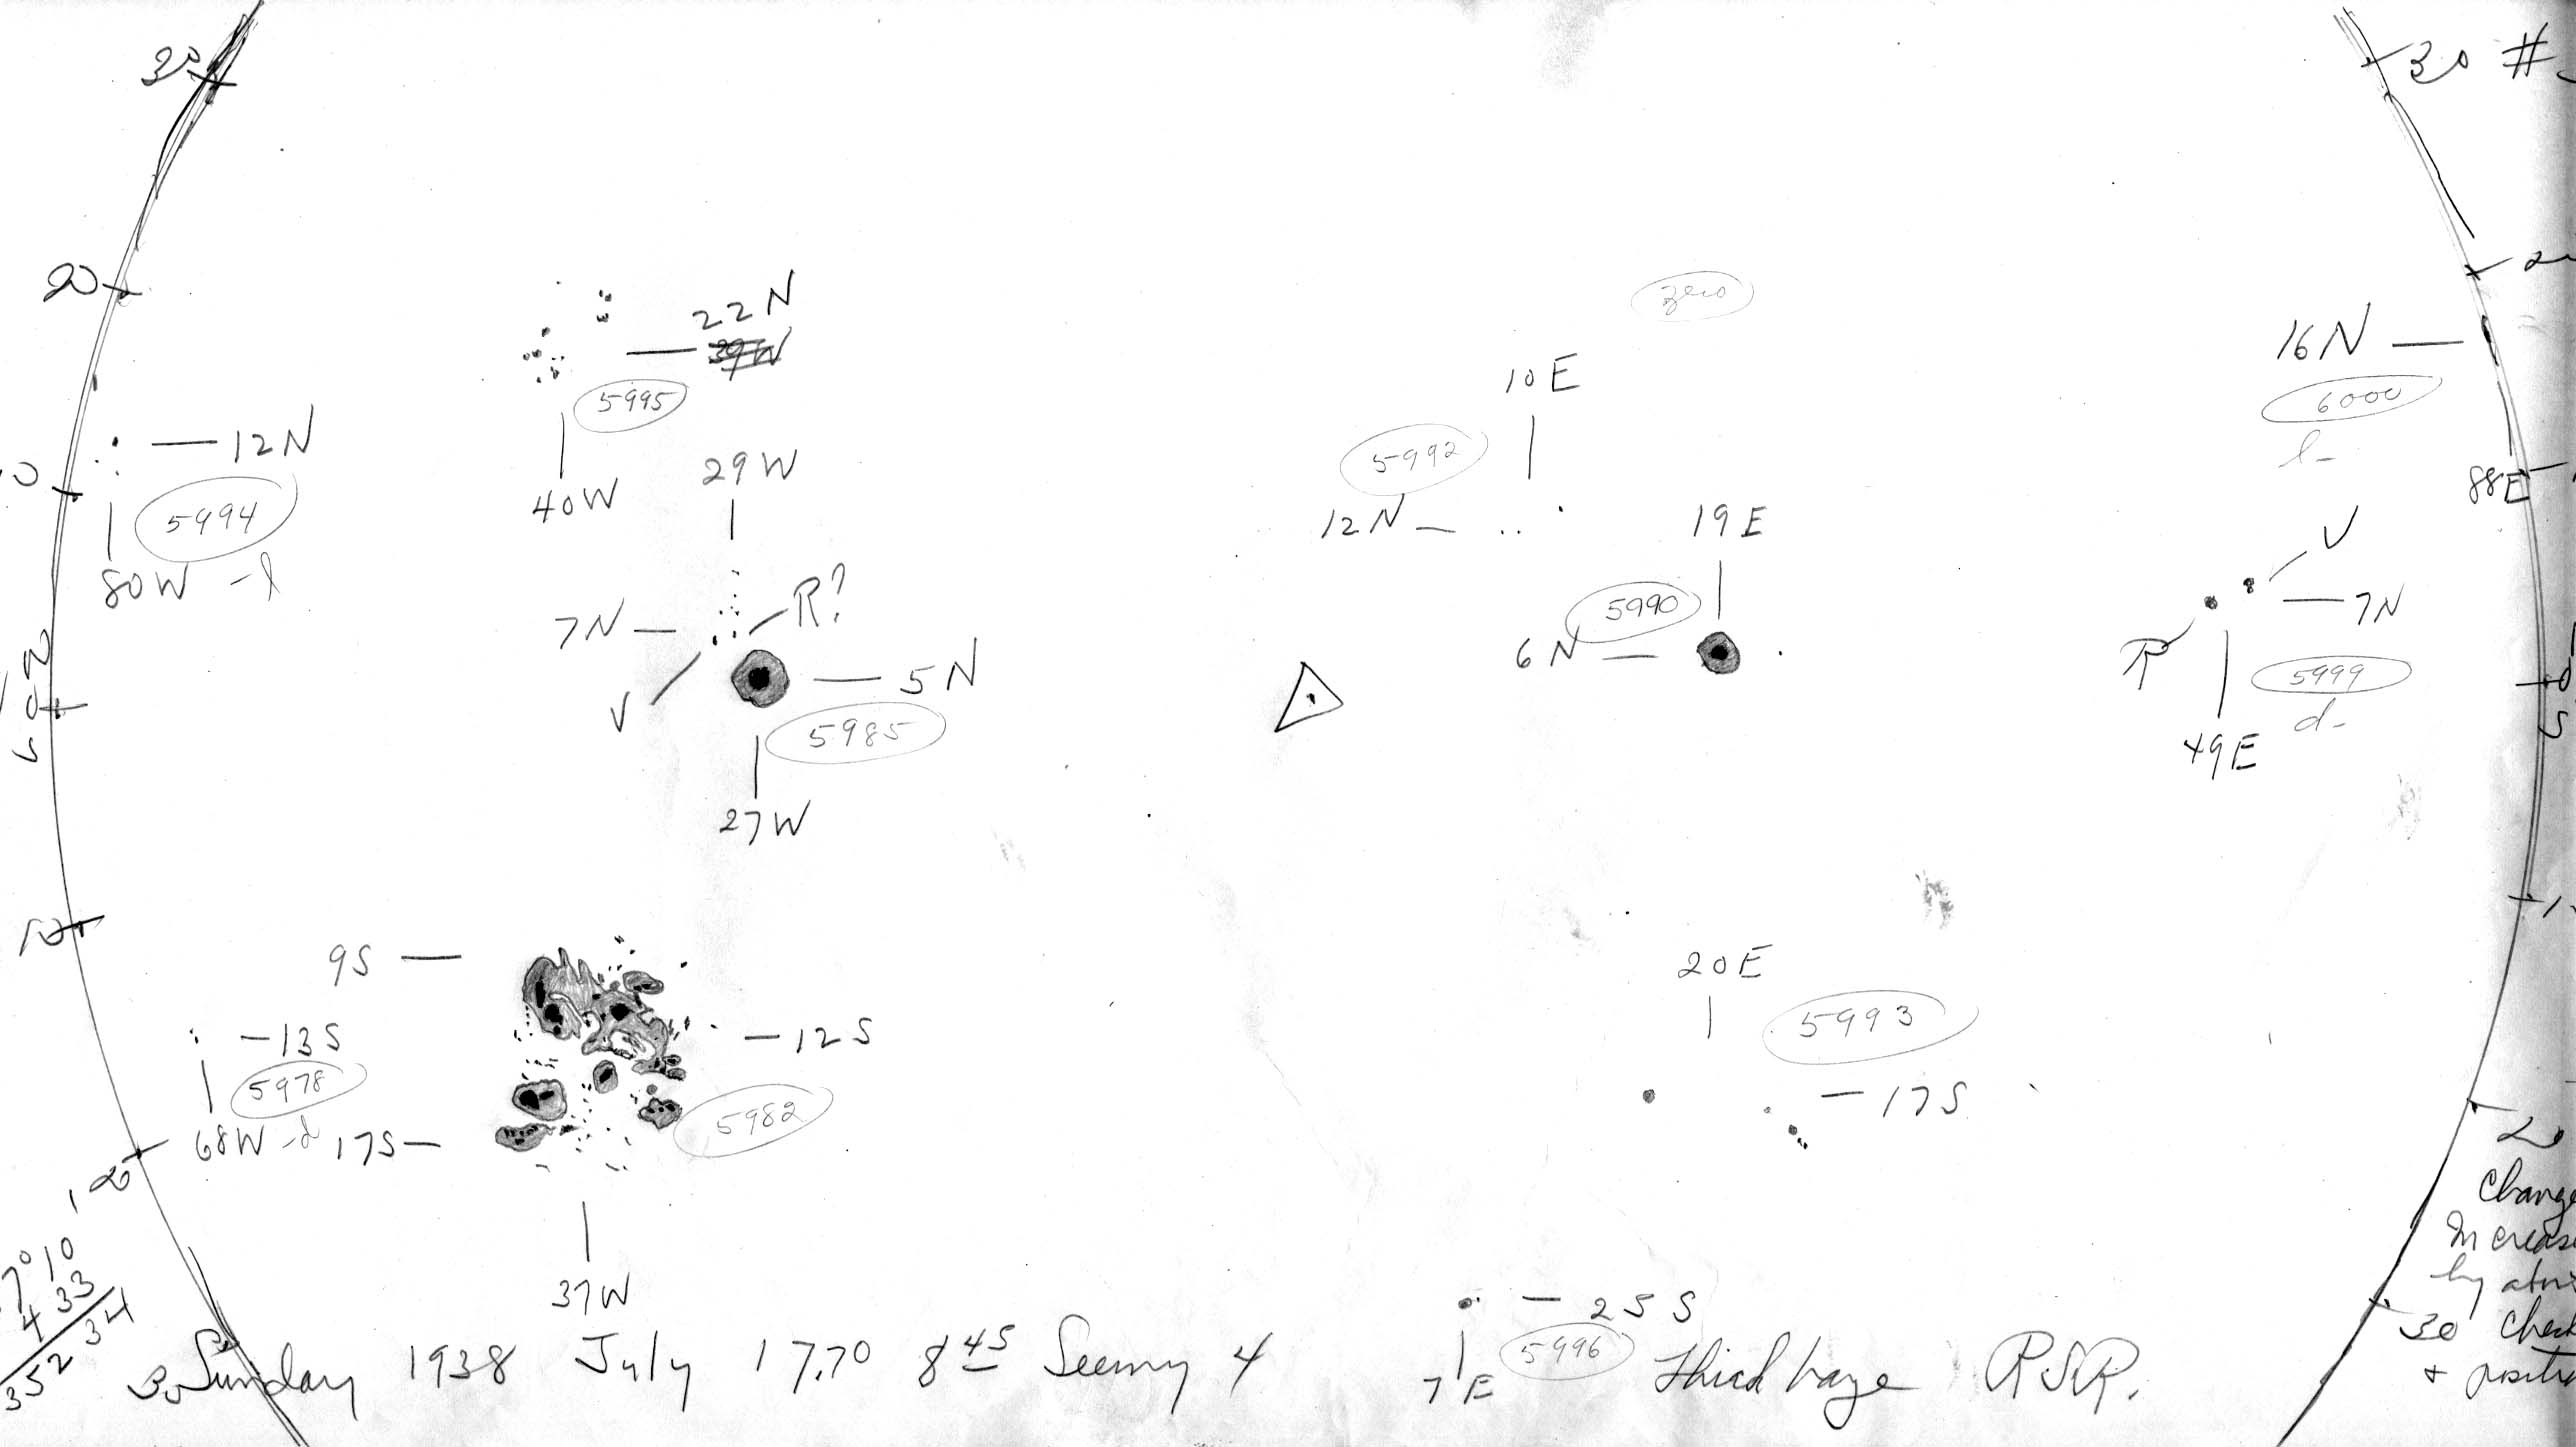 30
30 #
20
22 N
39W
5995
40W
12N
5994
80W -l
10
29 W
7N
R?
V
5 N
5985
27W
zero
10 E
5992
12N
19 E
5990
6 N
16 N
6000
l-
88E
V
7N
R
5999
d-
49E
N
0
S
0
S
10
9S
-13S
5978
68W -d
17S
-12S
5982
37W
20
20E
5993
-17S
20
Change
Increase
by
30 check
+
25 S
5996
7 E
7° 10
4 33
352 34
30
Sunday 1938 July 17.70 8 45 Seeing 4 Thick haze R.S.R.